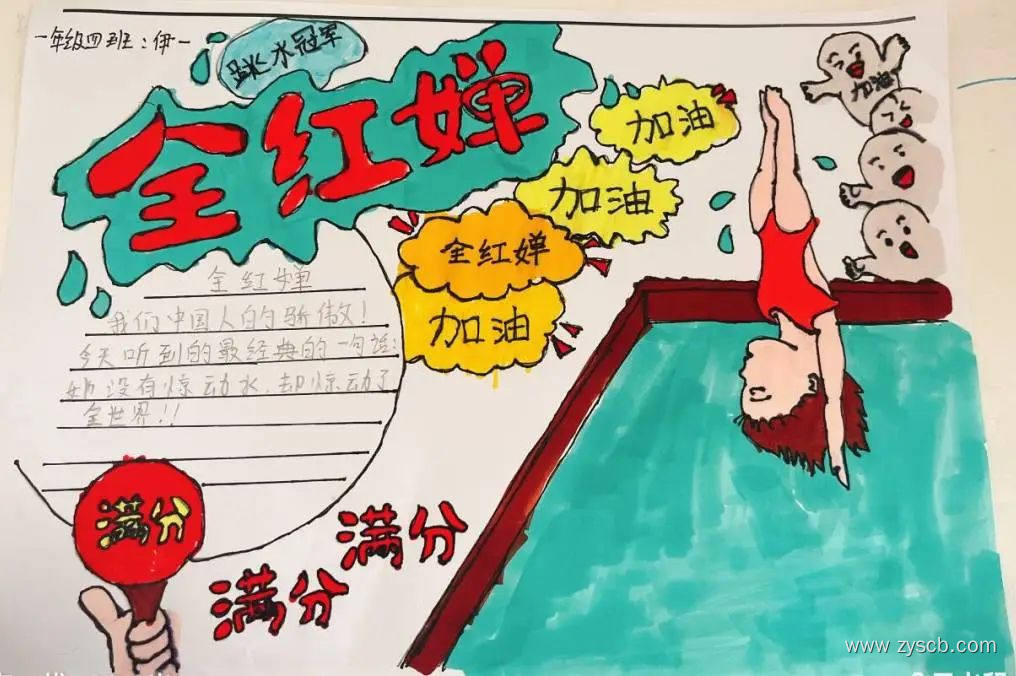 一年级四班:伊一
跳水冠军
全红婵
加油
加油
全红婵
加油
加油
全红婵
我们中国人的骄傲!
今天听到的最经典的一句话:
她没有惊动水,却惊动了
全世界!!
满分
满分
满分
www.zyscb.com